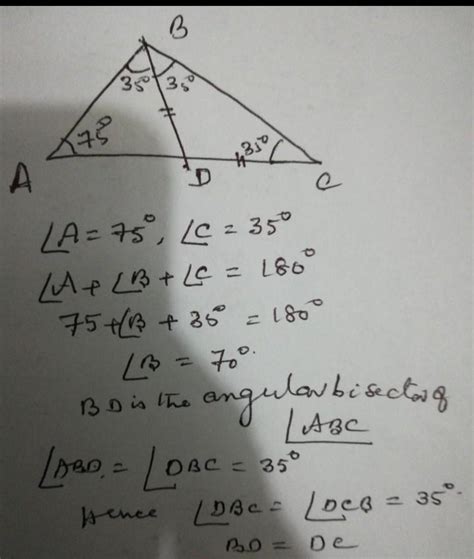 B
35° 35°
75° 35°
A D C
∠A = 75°, ∠C = 35°
∠A + ∠B + ∠C = 180°
75 + ∠B + 35° = 180°
∠B = 70°.
BD is the angular bisector of
∠ABC
∠ABD. = ∠DBC = 35°
Hence ∠DBC = ∠DCB = 35°
BD = DC